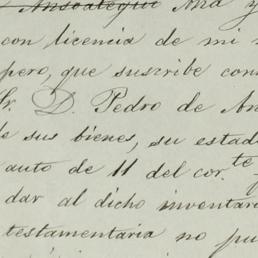 Ansoategui Ana y
con licencia de mi
pero, que suscribe con
Sr. D. Pedro de An
de sus bienes, su estad
auto de 11 del cor.te
dar al dicho inventar
testamentaria no pu